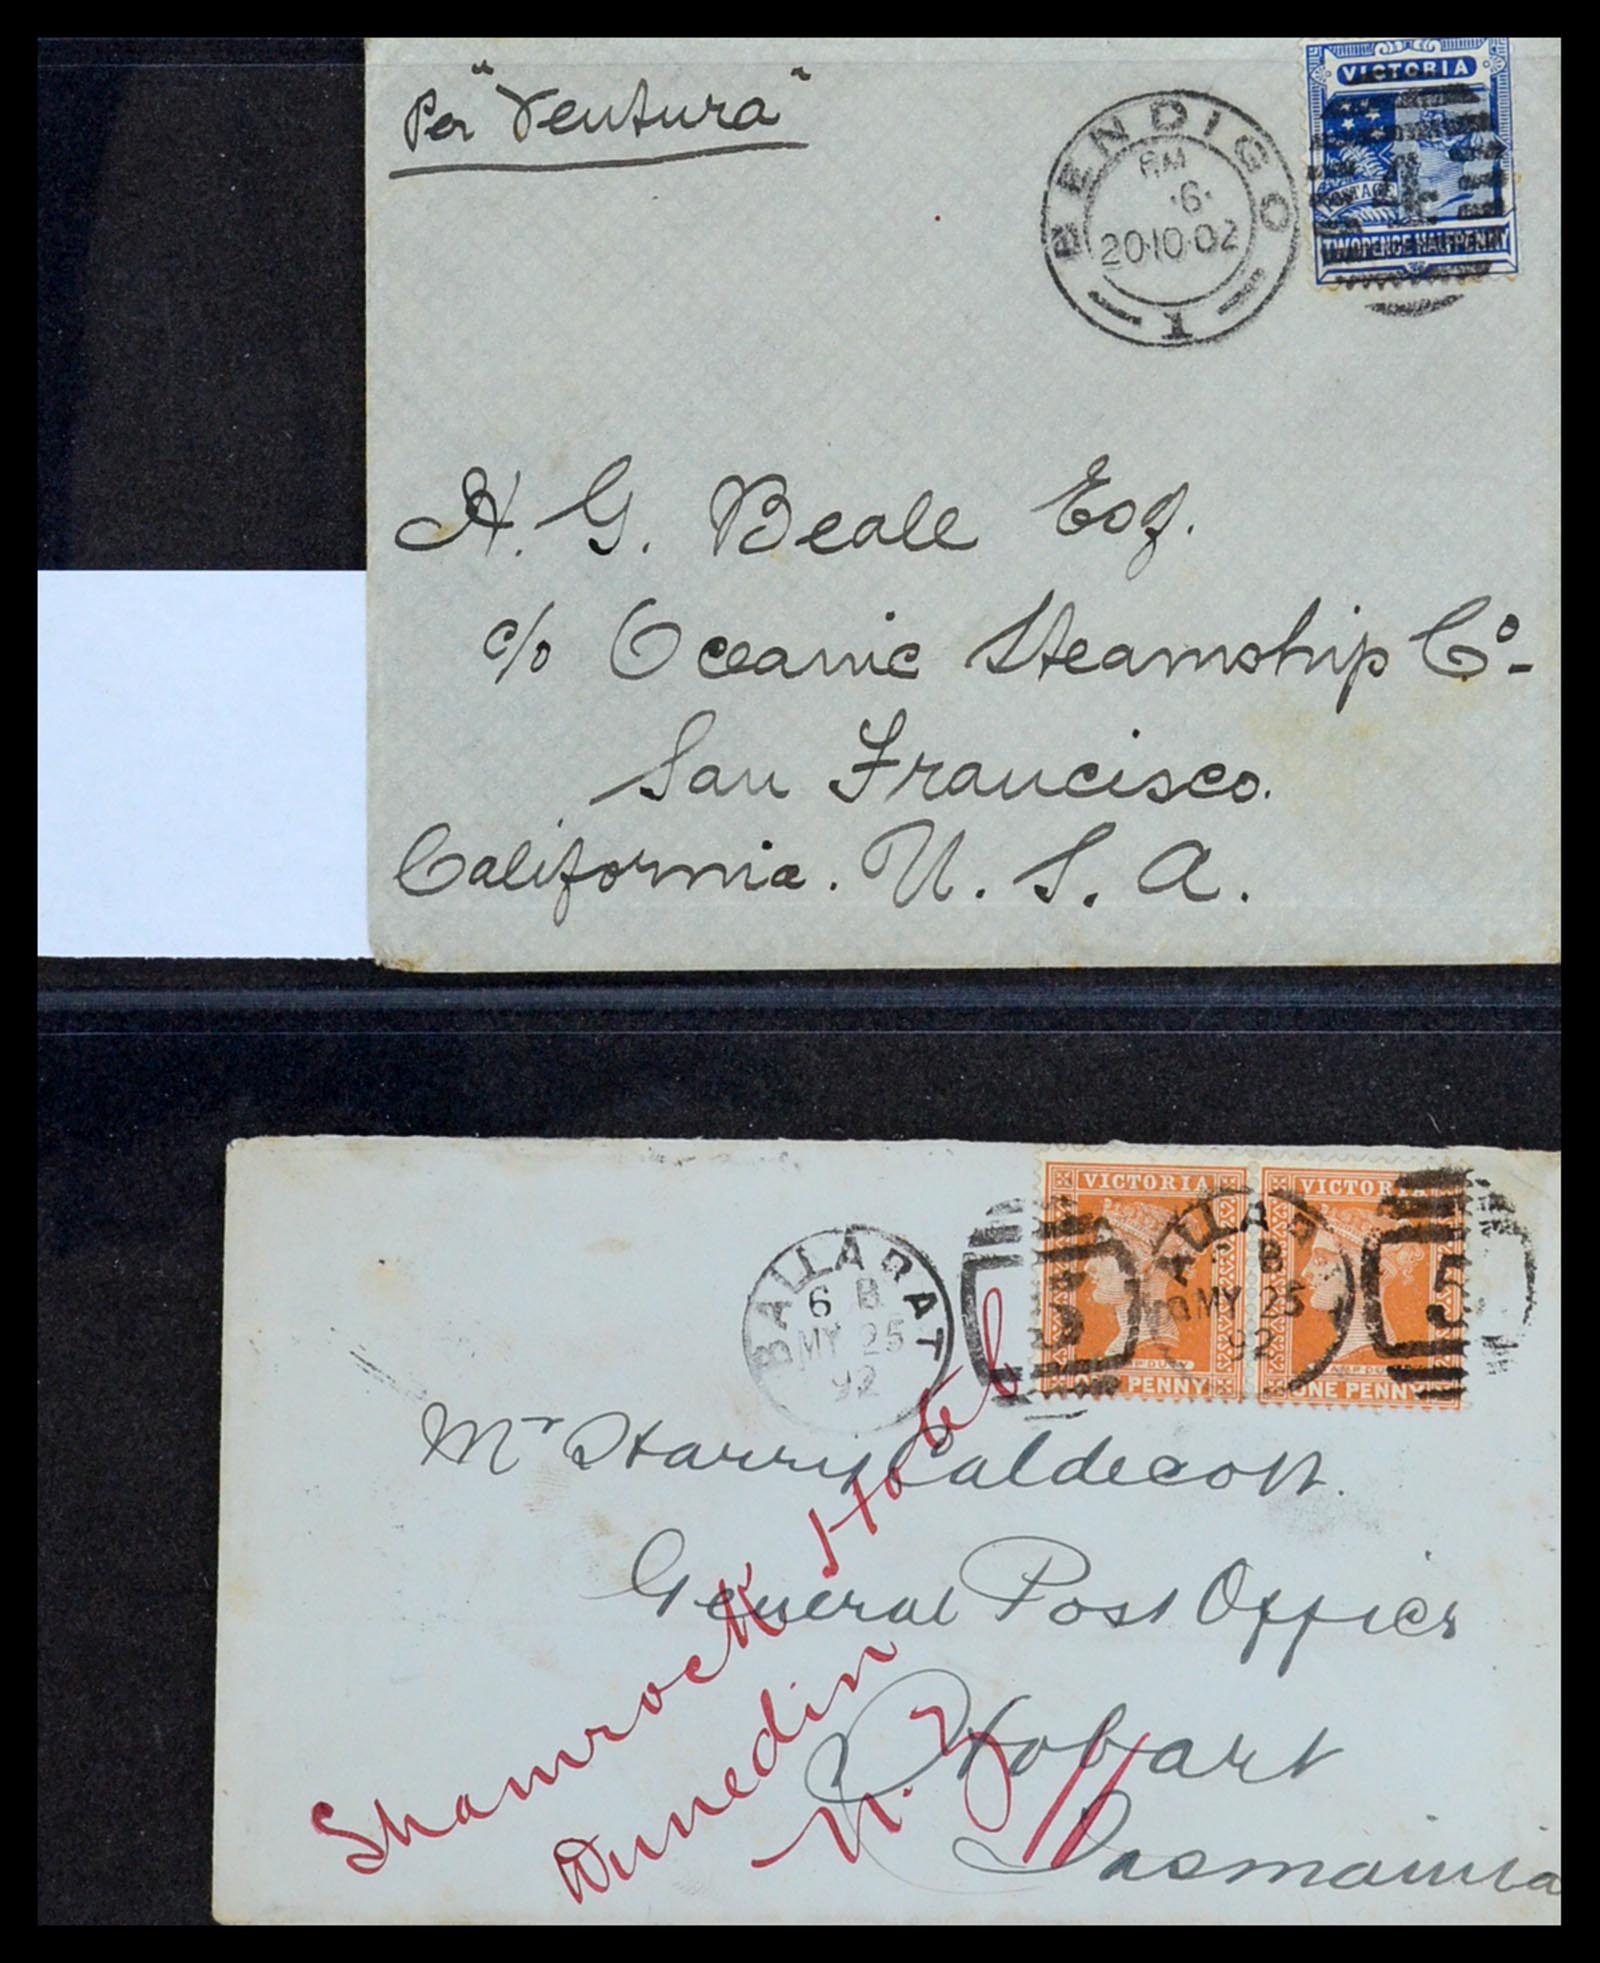 Per "Ventura"
BENDIGO
PM
.6.
20.10.02
1
VICTORIA
POSTAGE
TWOPENCE HALFPENNY
H. G. Beale Esq.
c/o Oceanic Steamship Co-
San Francisco.
California. U. S. A.
VICTORIA
VICTORIA
BALLARAT
6 B
MY 25
92
B
MY 25
92
5
PENNY
ONE PENNY
Mr Harry Caldecott.
General Post Office
Hobart
Tasmania
Shamrock Hotel
Dunedin
N. Z